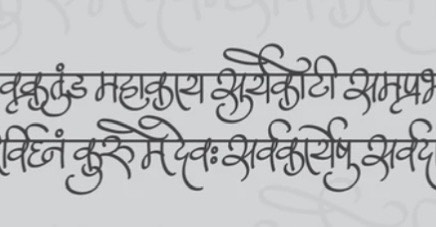 वक्रतुंड महाकाय सुर्यकोटी समप्रभ
र्विघ्नं कुरु मे देवः सर्वकार्येषु सर्वदा